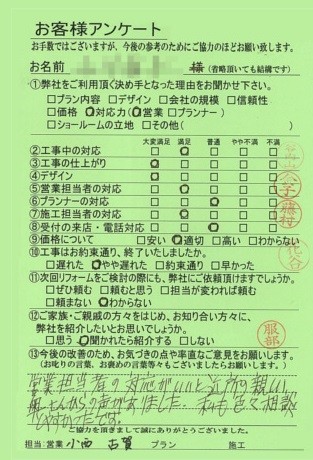 お客様アンケート
お手数ではございますが、今後の参考のためにご協力のほどお願い致します。
お名前 様 (省略頂いても結構です)
①弊社をご利用頂く決め手となった理由をお聞かせ下さい。
□プラン内容 □デザイン □会社の規模 □信頼性
□価格 □対応力(□営業 □プランナー)
□ショールームの立地 □その他( )
大変満足 満足 普通 やや不満 不満
②工事中の対応 □ □ □ □ □
③工事の仕上がり □ □ □ □ □
④デザイン □ □ □ □ □
⑤営業担当者の対応 □ □ □ □ □
⑥プランナーの対応 □ □ □ □ □
⑦施工担当者の対応 □ □ □ □ □
⑧受付の来店・電話対応 □ □ □ □ □
⑨価格について □安い □適切 □高い □わからない
⑩工事はお約束通り、終了いたしましたか。
□遅れた □やや遅れた □約束通り □早かった
⑪次回リフォームをご検討の際にも、弊社にご依頼頂けますでしょうか。
□ぜひ頼む □頼むと思う □担当が変われば頼む
□頼まない □わからない
⑫ご家族・ご親戚の方々をはじめ、お知り合い方々に、
弊社を紹介したいとお思いでしょうか。
□思う □聞かれたら紹介する □しない
服部
⑬今後の改善のため、お気づきの点や率直なご意見をお願いします。
(お叱りの言葉、お褒めの言葉、提案等々もございましたらお願いします。)
営業担当者の対応がいいと近所の親しい
奥さんからの声がありました。私も色々相談
しやすかったです。
ご協力を頂きまして誠にありがとうございました。
担当:営業 小西 古賀 プラン 施工